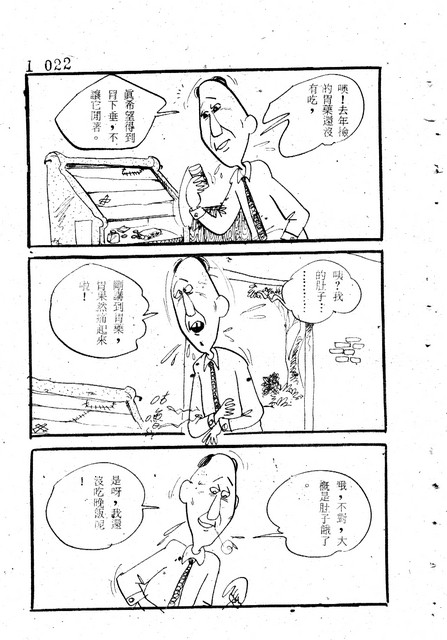 1 022
咦！去年撿
的胃藥還沒
有吃，
眞希望得到
胃下垂，不
讓它閒著。
咦？我
的肚子
……
剛講到胃藥，
胃果然痛起來
啦！
哦，不對，大
概是肚子餓了
。
是呀，我還
沒吃晚飯呢
！